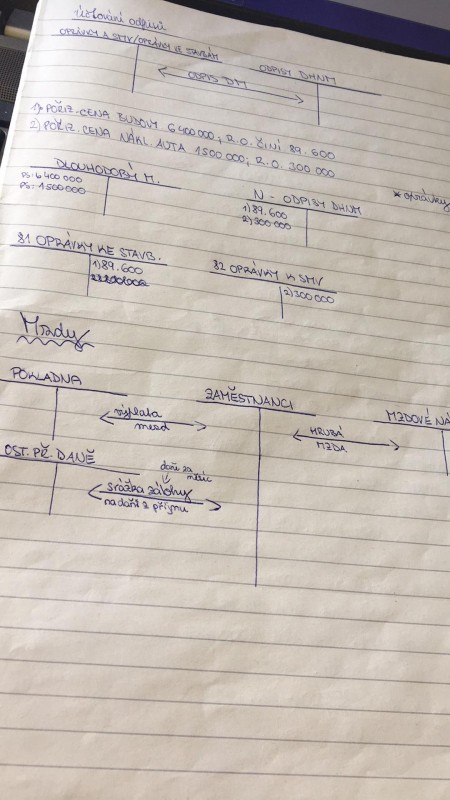 Účtování odpisů
OPRÁVKY A SMV/OPRÁVKY KE STAVBÁM
ODPISY DHNM
ODPIS DM
1) POŘIZ. CENA BUDOVY 6 400 000, R.O. ČINÍ 89.600
2) POŘIZ. CENA NÁKL. AUTA 1 500 000; R.O. 300 000
DLOUHODOBÝ M.
PS: 6 400 000
PS: 1 500 000
N - ODPISY DHNM
1) 89.600
2) 300 000
* oprávky
81 OPRÁVKY KE STAVB.
1) 89.600
82 OPRÁVKY K SMV
2) 300 000
Mzdy
POKLADNA
ZAMĚSTNANCI
MZDOVÉ NÁ
výplata
mezd
HRUBÁ
MZDA
OST. PŘ. DANĚ
daň za
měsíc
srážka zálohy
na daň z příjmu